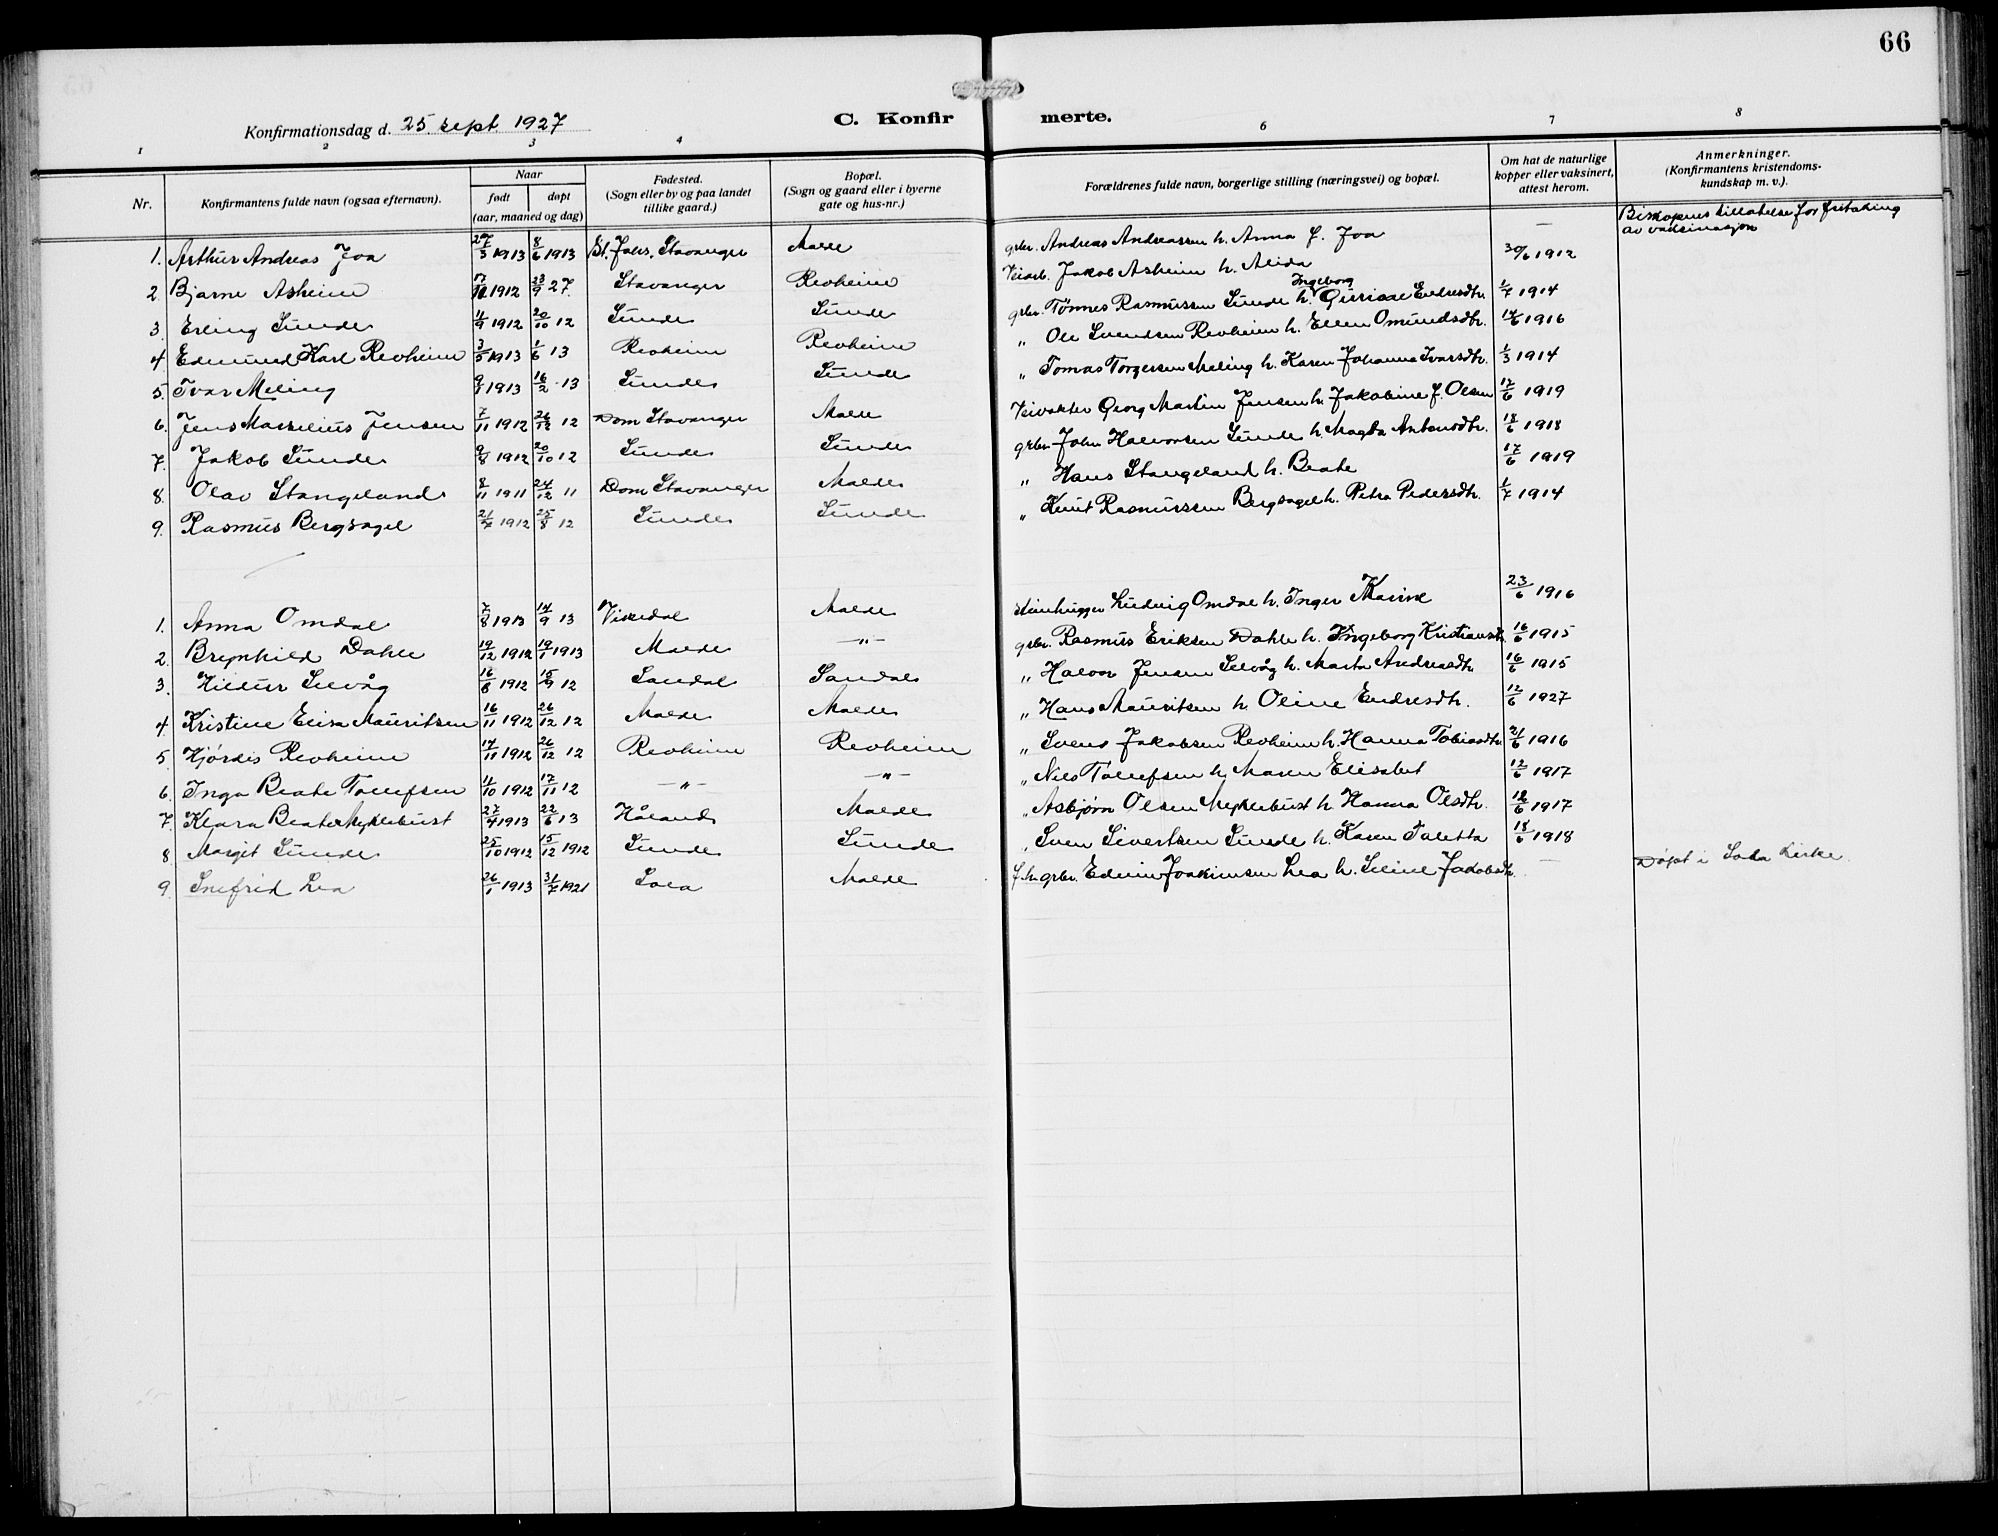 66
Konfirmationsdag d. 25. sept 1927
C. Konfirmerte.
1 2 3 4 6 7 8
Nr. | Konfirmantens fulde navn (ogsaa efternavn). | Naar født døpt (aar, maaned og dag) | Fødested. (Sogn eller by og paa landet tillike gaard.) | Bopæl. (Sogn og gaard eller i byerne gate og hus-nr.) | Forældrenes fulde navn, borgerlige stilling (næringsvei) og bopæl. | Om hat de naturlige kopper eller vaksinert, attest herom. | Anmerkninger. (Konfirmantens kristendomskundskap m. v.).
1. Arthur Andreas Joa 27/3 1913 8/6 1913 St. Johs. Stavanger Malde grbr. Andreas Andreassen h. Anna f. Joa — Biskopens tillatelse for fritaking av vaksinasjon
2. Bjarne Asheim 1912 23/9 27 Stavanger Revheim Veiarb. Jakob Asheim h. Alida 30/6 1912
3. Erling Sunde 11/9 1912 20/10 12 Sunde Sunde grbr. Tønnes Rasmussen Sunde h. Ingeborg Endresdtr. 1/7 1914
4 Edmund Karl Revheim 3/5 1913 1/6 13 Revheim Revheim " Ole Svendsen Revheim h. Ellen Omundsdtr. 14/6 1916
5. Ivar Meling 9/1 1913 16/2 13 Sunde Sunde " Tomas Torgersen Meling h. Karen Johanna Ivarsdtr. 1/3 1914
6. Jens Marselius Jensen 7/11 1912 26/12 12 Dom Stavanger Malde Veivokter Georg Martin Jensen h. Jakobine f. Olsen 17/6 1919
7. Jakob Sunde 9/8 1912 20/10 12 Sunde Sunde grbr. John Halvorsen Sunde h. Magla Antonsdtr. 18/6 1918
8. Olav Stangeland 8/11 1911 24/12 11 Dom Stavanger Malde " Hans Stangeland h. Beate 17/6 1919
9. Rasmus Bergsagel 21/7 1912 25/8 12 Sunde Sunde " Knut Rasmussen Bergsagel h. Petra Pedersdtr. 1/7 1914
1. Anna Omdal 7/8 1913 14/9 13 Vikedal Malde Stenhugger Ludvig Omdal h. Inger Marine 23/6 1916
2. Brynhild Dahle 19/12 1912 19/1 1913 Malde —"— grbr. Rasmus Eriksen Dahle h. Ingeborg Kristiansdtr. 16/6 1915
3. Hildur Selvåg 16/8 1912 15/9 12 Sandal Sandal " Halvor Jensen Selvåg h. Marta Andreasdtr. 16/6 1915
4. Kristine Elisa Mauritsen 16/11 1912 26/12 12 Malde Malde " Hans Mauritsen h. Oline Endresdtr. 12/6 1927
5. Hjørdis Revheim 14/11 1912 26/12 12 Revheim Revheim " Svend Jakobsen Revheim h. Hanna Tobiasdtr. 21/6 1916
6. Inga Beate Tollefsen 11/10 1912 17/11 12 —"— —"— " Nils Tollefsen h. Maren Elisabet 12/6 1917
7. Klara Beate Myklebust 27/4 1913 22/6 13 Håland Malde " Asbjørn Olsen Myklebust h. Hanna Olsdtr. 12/6 1917
8 Margit Sunde 25/10 1912 15/12 1912 Sunde Sunde " Sven Sivertsen Sunde h. Karen Taletta 18/6 1918
9. Snefrid Lea 26/1 1913 31/7 1921 Sola Malde f.h. grbr. Edvin Joakimsen Lea h. Seline Jakobsdtr. — Døpt i Sola kirke.